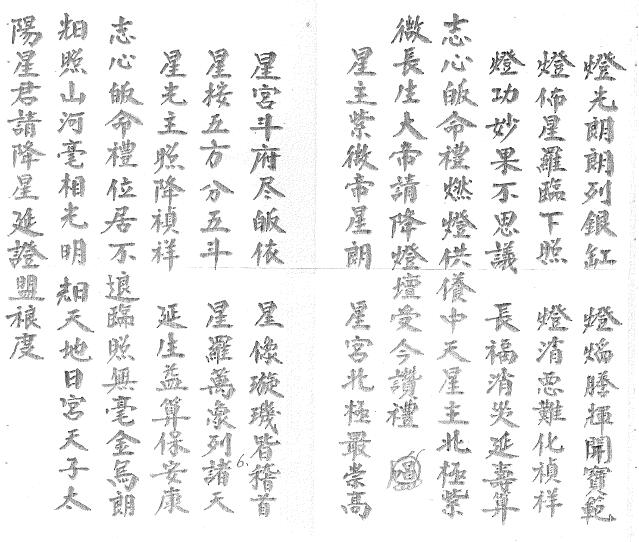 燈光朗朗列銀缸　燈燭騰輝開寶範
燈佈星羅臨下照　燈消悪難化禎祥
燈功妙果不思議　長福消災延壽算
志心皈命禮燃燈供養中天星主北極紫
微長生大帝請降燈壇受今讚禮
星主紫微帝星朗　星宮北極最崇高
星宮斗府尽皈依　星像璇璣皆稽首
星接五方分五斗　星羅萬像列諸天
星光主照降禎祥　延生益算保安康
志心皈命禮位居不退臨照無毫金烏朗
照山河毫相光明天地日宮天子太
陽星君請降星延證盟禳度
6.